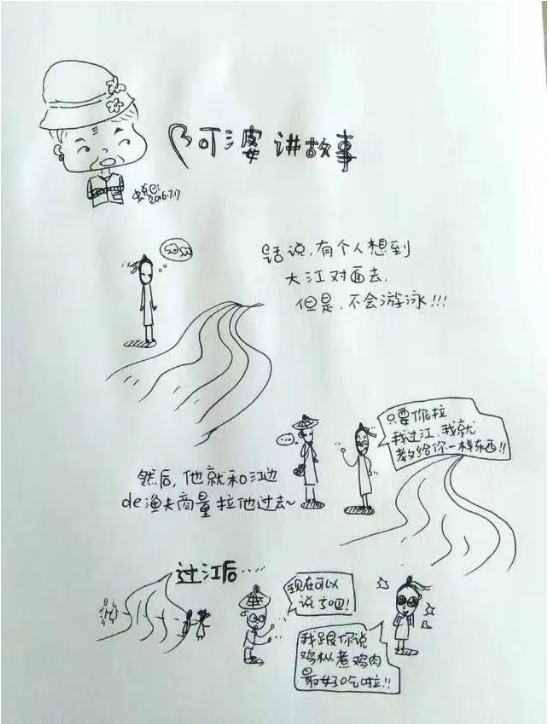 阿婆讲故事
2016.7.17
话说,有个人想到
大江对面去,
但是,不会游泳!!!
...
只要你拉
我过江,我就
教给你一样东西!!
然后,他就和江边
de渔夫商量拉他过去~
过江后.....
现在可以
说了吧!
我跟你说
鸡枞煮鸡肉
最好吃啦!!